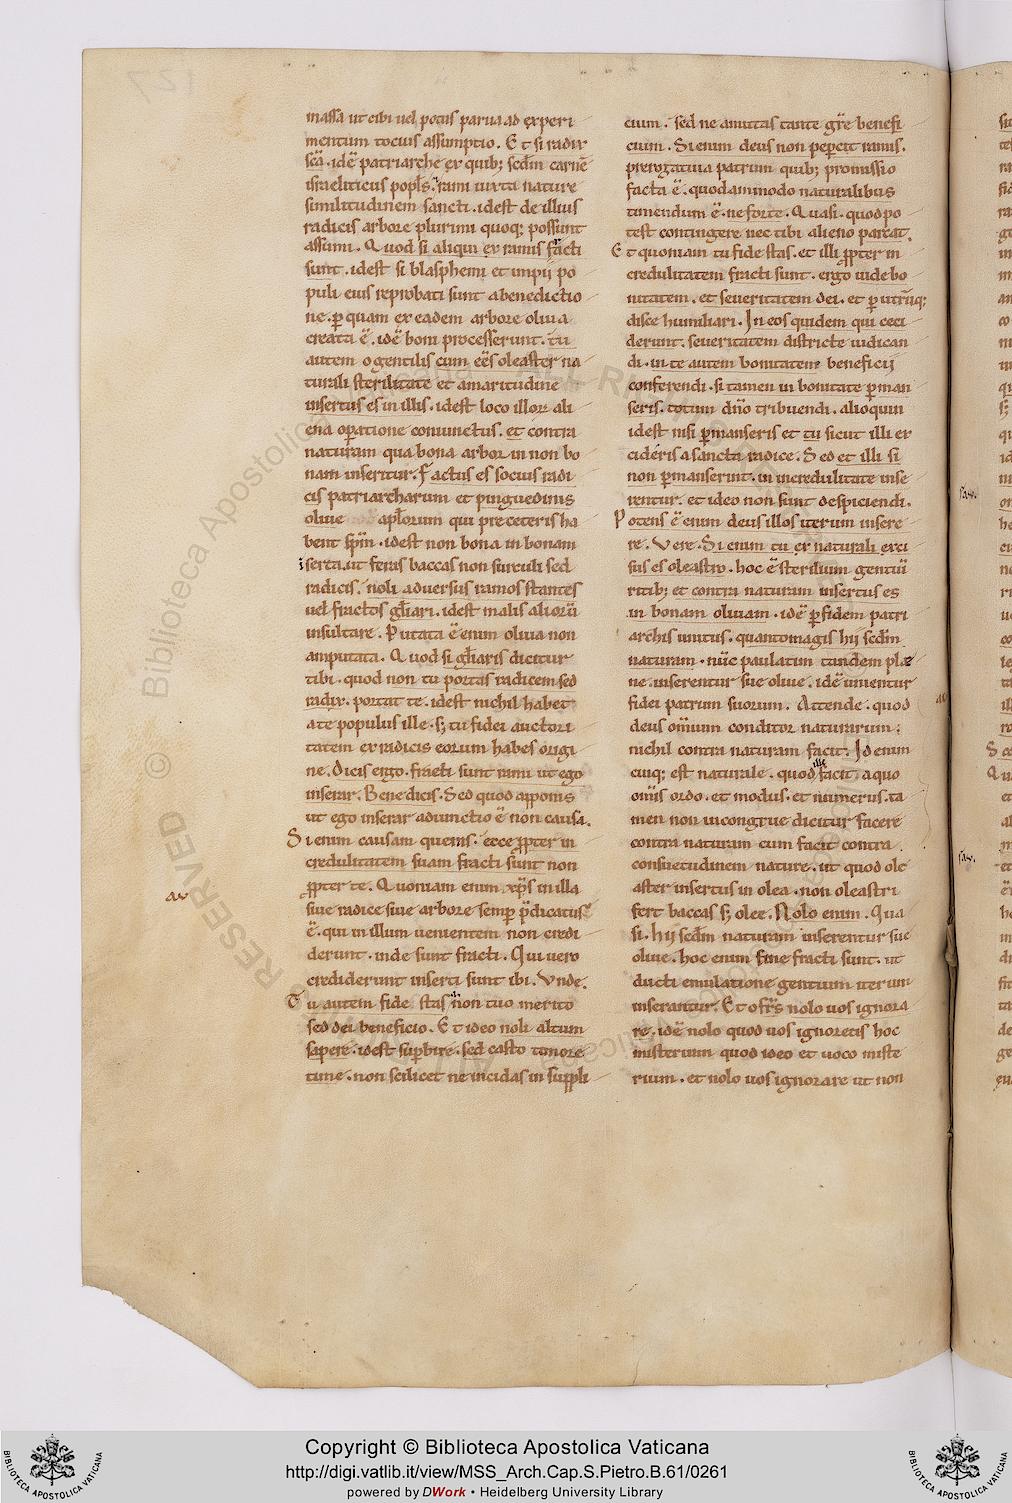 massa ut cibi uel potus parua ad experi
mentum tocius assumptio. Et si radix
scā. idē patriarche ex quib; scdm̄ carnē
israeliticus popl̄s. rami iuxta nature
similitudinem sancti. idest de illius
radicis arbore plurimi quoq; possunt
assumi. Quod si aliqui ex ramis fracti
sunt. idest si blasphemi et impij po
puli eius reprobati sunt a benedictio
ne. ꝑ quam ex eadem arbore oliua
creata ē. idē boni processerunt. tu
autem o gentilis cum eēs oleaster na
turali sterilitate et amaritudine
insertus es in illis. idest loco illoꝝ ali
ena oꝑatione coniunctus. et contra
naturam qua bona arbor in non bo
nam inseritur. Factus es socius radi
cis patriarcharum et pinguedinis
oliue apl̄orum qui pre ceteris ha
bent sp̄m. idest non bona in bonam
iserta. ut feras baccas non surculi sed
radicis. noli aduersus ramos stantes
uel fractos gl̄iari. idest malis alioꝝ
insultare. Putata ē enim oliua non
amputata. Quod si gl̄iaris dicitur
tibi. quod non tu portas radicem sed
radix. portat te. idest nichil habet
a te populus ille. s; tu fidei auctori
tatem ex radicis eorum habes origi
ne. Dicis ergo. fracti sunt rami ut ego
inserar. Benedicis. Sed quod apponis
ut ego inserar adiunctio ē non causa.
Si enim causam queris. ecce ꝓpter in
credulitatem suam fracti sunt non
ꝓpter te. Quoniam enim xp̄s in illa
siue radice siue arbore semꝑ p̄dicatus
ē. qui in illum uenientem non credi
derunt. inde sunt fracti. Qui uero
crediderunt inserti sunt ibi. Vnde.
Tu autem fide stas non tuo merito
sed dei beneficio. Et ideo noli altum
sapere. idest suꝑbire. sed casto timore
time. non scilicet ne incidas in suppli
au
cium. sed ne amittas tante gr̄e benefi
cium. Si enim deus non peꝑcit ramis.
prerogatiua patrum quib; promissio
facta ē. quodammodo naturalibus
timendum ē. ne forte. Quasi. quod po
test contingere nec tibi alieno parcat.
Et quoniam tu fide stas. et illi ꝓpter in
credulitatem fracti sunt. ergo uide bo
nitatem. et seueritatem dei. et ꝑ utrūq;
disce humiliari. In eos quidem qui ceci
derunt. seueritatem districte iudican
di. in te autem bonitatem beneficij
conferendi. si tamen in bonitate ꝑman
seris. totum dn̄o tribuendi. alioquin
idest nisi ꝑmanseris et tu sicut illi ex
cideris a sancta radice. Sed et illi si
non ꝑmanserint. in incredulitate inse
rentur. et ideo non sunt despiciendi.
Potens ē enim deus illos iterum insere
re. Vere. Si enim tu ex naturali exci
sus es oleastro. hoc ē sterilium gentiū
ritib; et contra naturam insertus es
in bonam oliuam. idē ꝑ fidem patri
archis unitus. quantomagis hij scdm̄
naturam. nūc paulatim tandem ple
ne. inserentur sue oliue. idē unientur
fidei patrum suorum. Attende. quod
deus omnium conditor naturarum;
nichil contra naturam facit. Id enim
cuiq; est naturale. quod ille facit. a quo
om̄is ordo. et modus. et numerus. ta
men non incongrue dicitur facere
contra naturam cum facit contra
consuetudinem nature. ut quod ole
aster insertus in olea. non oleastri
fert baccas s; olee. Nolo enim. Qua
si. hij scdm̄ naturam inserentur sue
oliue. hoc enim fine fracti sunt. ut
ducti emulatione gentium iterum
inserantur. Et o fr̄s nolo uos ignora
re. idē nolo quod uos ignoretis hoc
misterium quod ideo et uoco miste
rium. et nolo uos ignorare ut non
Copyright © Biblioteca Apostolica Vaticana
http://digi.vatlib.it/view/MSS_Arch.Cap.S.Pietro.B.61/0261
powered by DWork • Heidelberg University Library